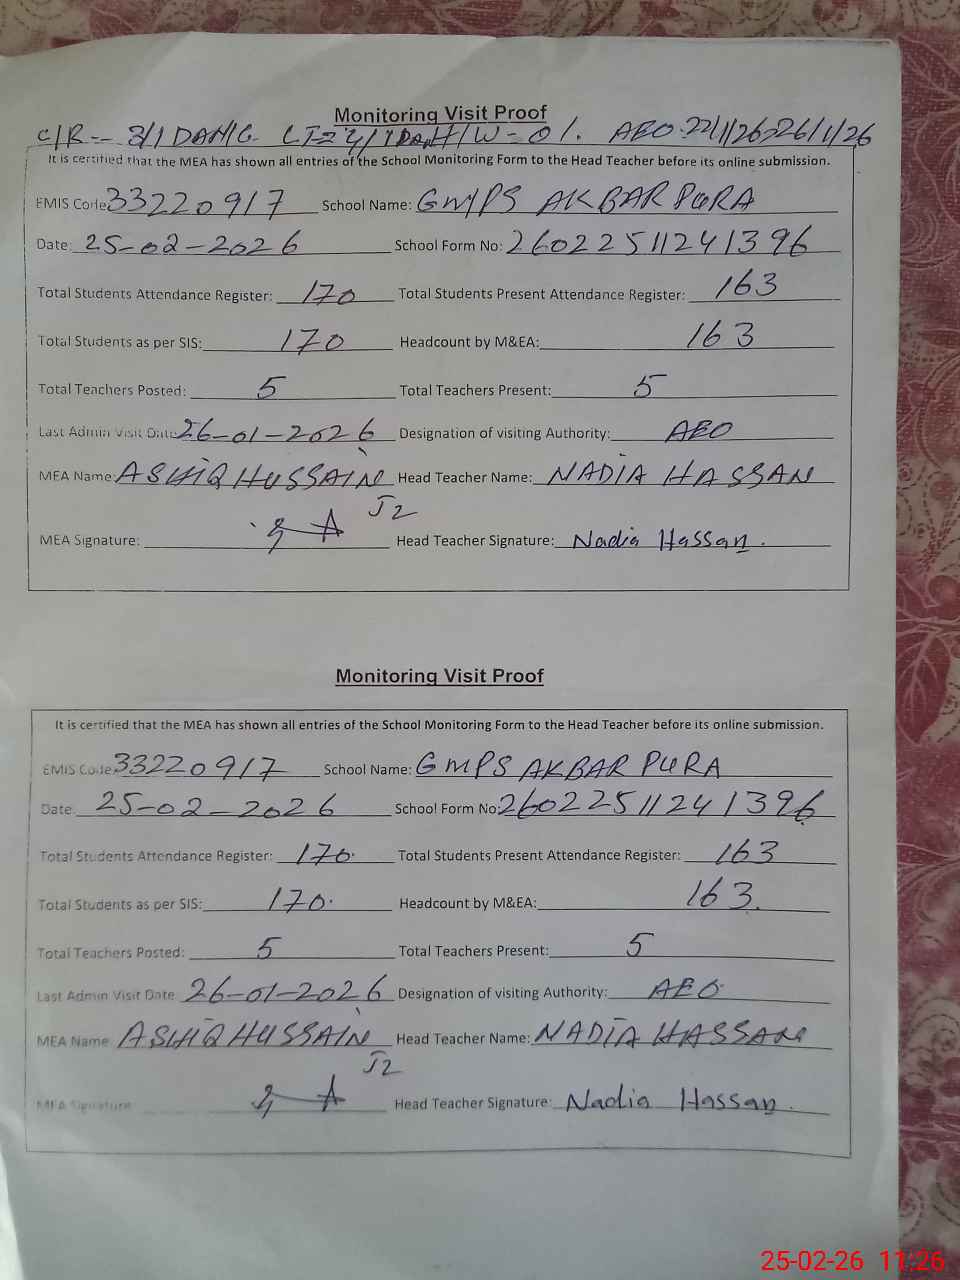 Monitoring Visit Proof
C/R-- 3/1 DAM/G- LI=24/1DaM/W=01. AEO.22/1/26>26/1/26
It is certified that the MEA has shown all entries of the School Monitoring Form to the Head Teacher before its online submission.
EMIS Code 33220917 School Name: GMPS AKBAR PURA
Date: 25-02-2026 School Form No: 26022511241396
Total Students Attendance Register: 170 Total Students Present Attendance Register: 163
Total Students as per SIS: 170 Headcount by M&EA: 163
Total Teachers Posted: 5 Total Teachers Present: 5
Last Admin Visit Date 26-01-2026 Designation of visiting Authority: AEO
MEA Name: ASHIQ HUSSAIN Head Teacher Name: NADIA HASSAN
J2
MEA Signature: Head Teacher Signature: Nadia Hassan.
Monitoring Visit Proof
It is certified that the MEA has shown all entries of the School Monitoring Form to the Head Teacher before its online submission.
EMIS Code 33220917 School Name: GMPS AKBAR PURA
Date: 25-02-2026 School Form No: 26022511241396
Total Students Attendance Register: 170. Total Students Present Attendance Register: 163
Total Students as per SIS: 170. Headcount by M&EA: 163.
Total Teachers Posted: 5 Total Teachers Present: 5
Last Admin Visit Date 26-01-2026 Designation of visiting Authority: AEO.
MEA Name ASHIQ HUSSAIN Head Teacher Name: NADIA HASSAN
J2
MEA Signature Head Teacher Signature: Nadia Hassan.
25-02-26 11:26